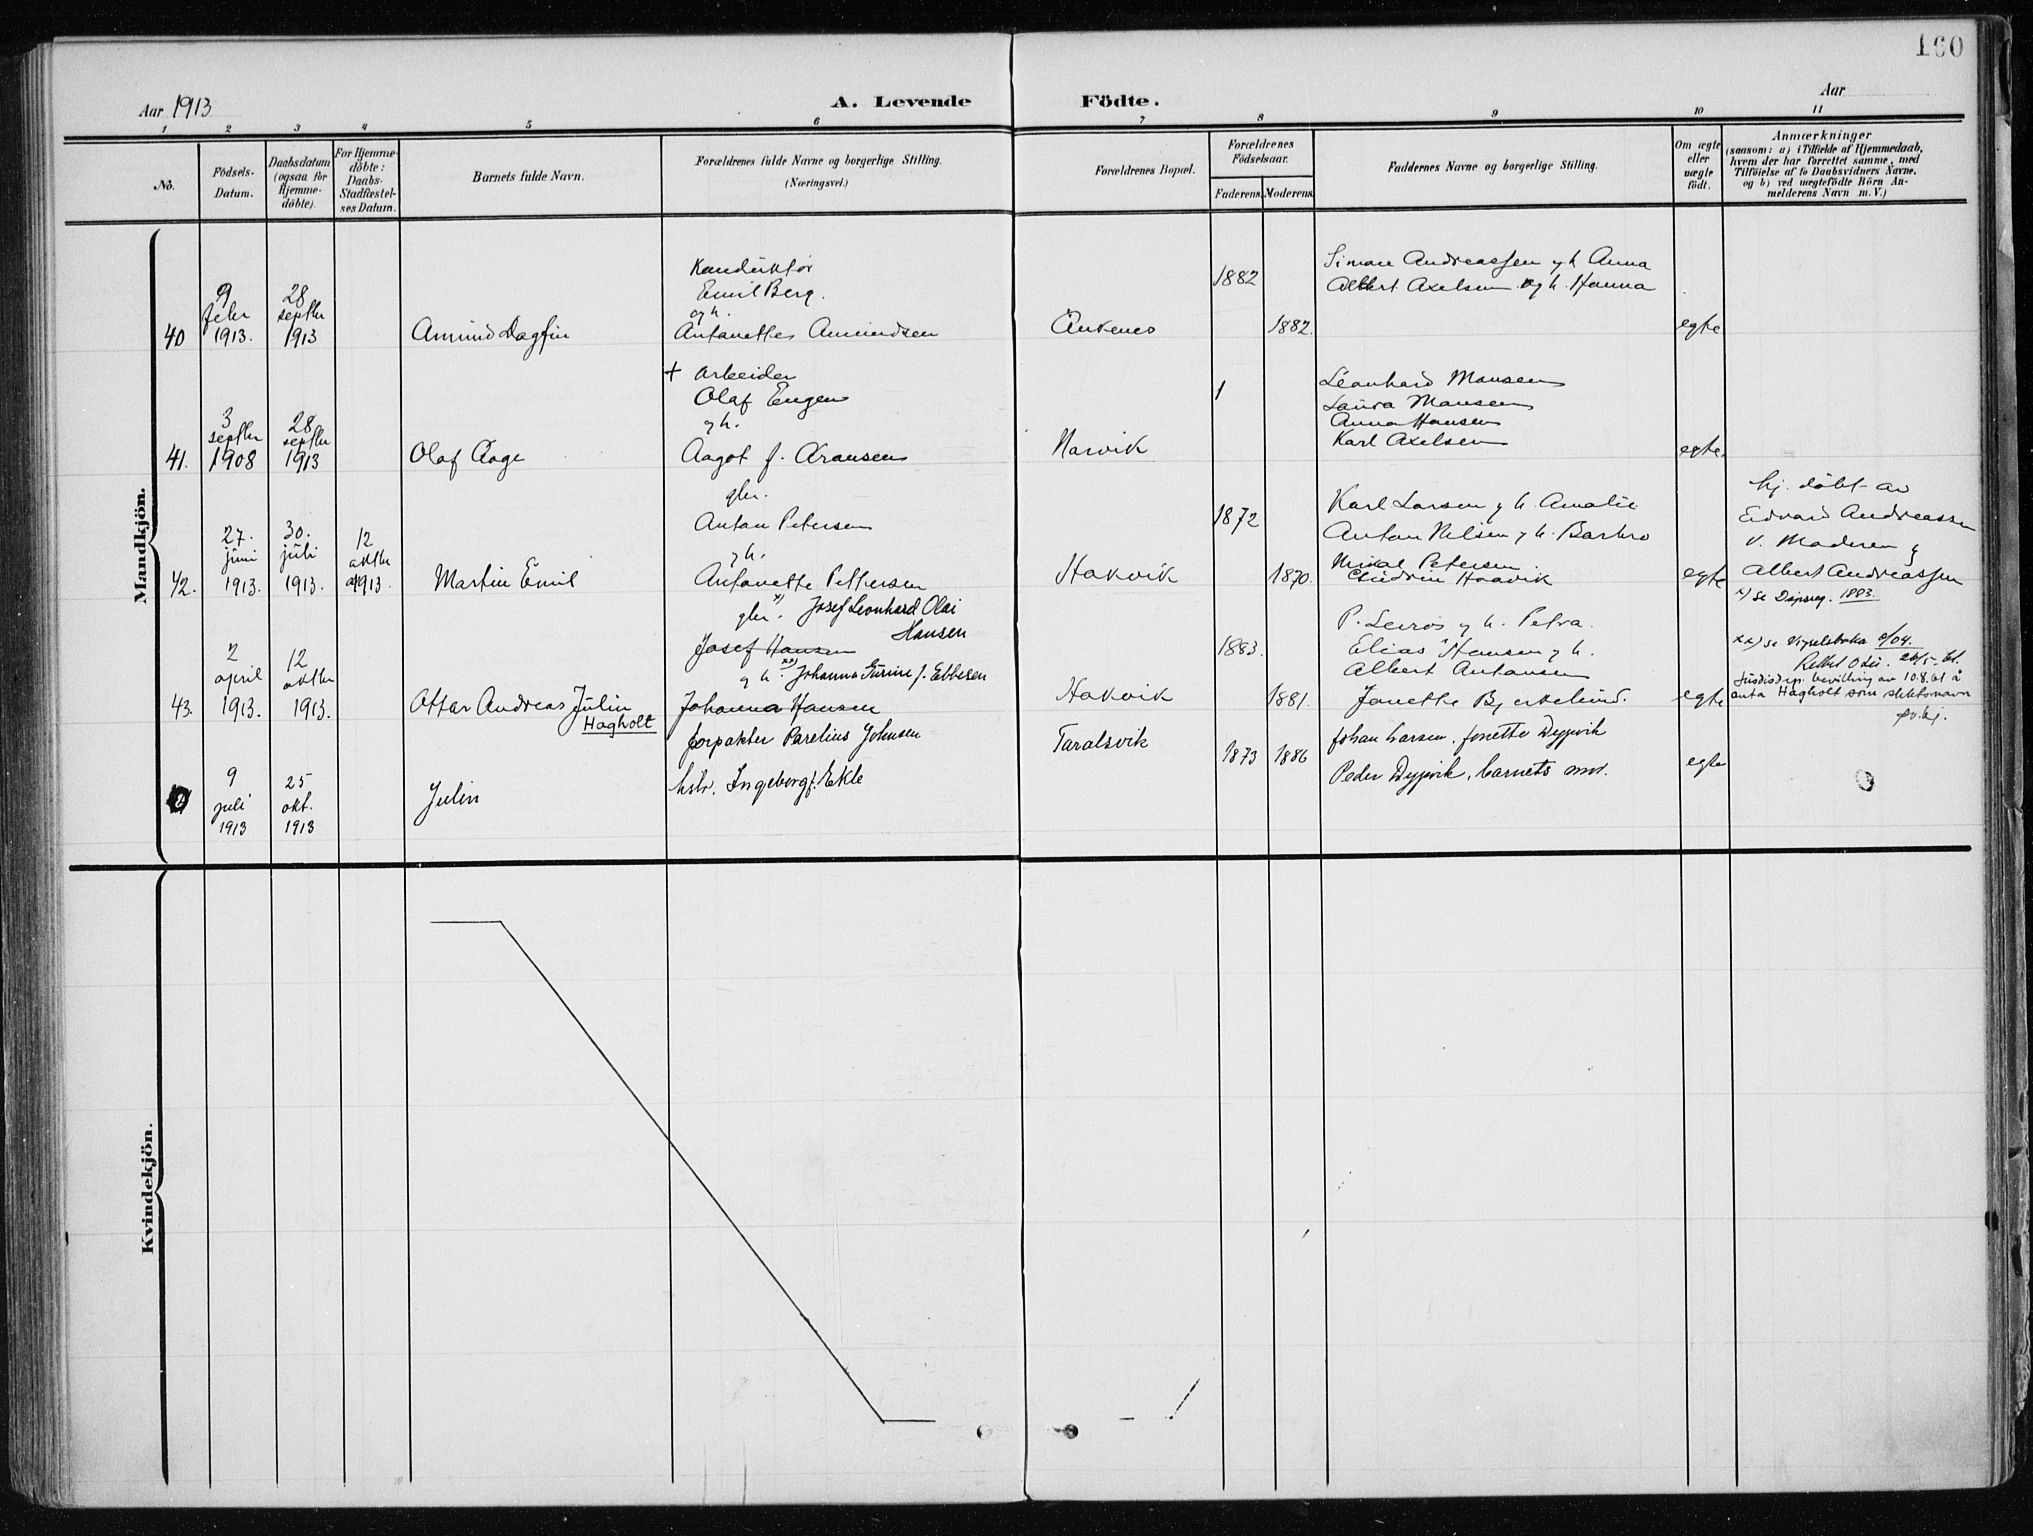 160
Aar 1913
A. Levende Födte.
Aar
1 2 3 4 5 6 7 8 9 10 11
No.
Födsels-
Datum.
Daabsdatum
(ogsaa for
Hjemme-
döbte).
For Hjemme-
döbte:
Daabs-
Stadfæstel-
ses Datum.
Barnets fulde Navn.
Forældrenes fulde Navne og borgerlige Stilling.
(Næringsvei.)
Forældrenes Bopæl.
Forældrenes
Födselsaar.
Faderens
Moderens
Faddernes Navne og borgerlige Stilling.
Om ægte
eller
uægte
födt.
Anmærkninger
(saasom: a) i Tilfælde af Hjemmedaab,
hvem der har forrettet samme, med
Tilföielse af to Daabsvidners Navne,
og b) ved uægtefödte Börn An-
melderens Navn m. V.)
Mandkjön.
40
9
febr
1913.
28
septbr
1913
Amund Dagfin
Konduktör
Emil Berg.
og h.
Antonette Amundsen
Ankenes
1882
1882.
Simon Andreassen og h. Anna
Albert Axelsen og h. Hanna
egte
41.
3
septbr
1908
28
septbr
1913
Olaf Aage
+ Arbeider
Olaf Engen
og h.
Aagot f. Aransen
Narvik
1
Leonhard Monsen
Laura Monsen
Anna Hansen
Karl Axelsen
egte.
42.
27.
juni
1913.
30.
juli
1913.
12
oktbr
1913.
Martin Emil
gbr.
Anton Petersen
og h.
Antonette Pettersen
Hakvik
1872
1870.
Karl Larsen og h. Amalie
Anton Nilsen og h. Barbro
Mikal Petersen
Haavik
egte
hj. döbt av
Edvard Andreassen
v. Moderen og
Albert Andreassen
x) se Dåpsreg. 1883.
43.
2
april
1913.
12
oktbr
1913.
Ottar Andreas Julin
Hagholt
gbr. x) Josef Leonhard Olai
Hansen
Josef Hansen
og h. xx) Johanna Turine f. Ebbesen
Johanna Hansen
Hakvik
1883.
1881.
P. Leiros og h. Petra.
Elias Hansen og h.
Albert Antonsen
Jonette Bjerkelund.
egte
xx) se Vigselsboka 9/04.
Rettet O di. 26/5-61.
Justisdep. bevilling av 10.8.61 å
anta Hagholt som slektsnavn
9
juli
1913
25
okt.
1913
Julin
Forpakter Parelius Johnsen
hstr. Ingeborg f. Ekle
Taralsvik
1873
1886
Johan Larsen, Jonette Dypvik
Peder Dypvik, barnets mor.
egte
Kvindekjön.